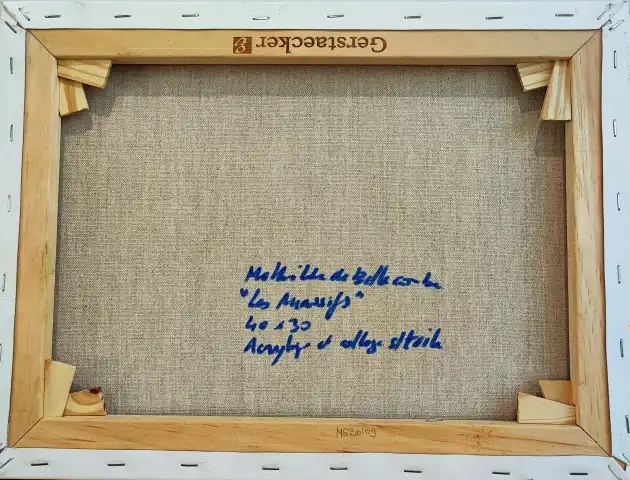 Gerstaecker
Mathilde de Bellecombe
"Les Massifs"
40 x 30
Acrylique et collage s/toile